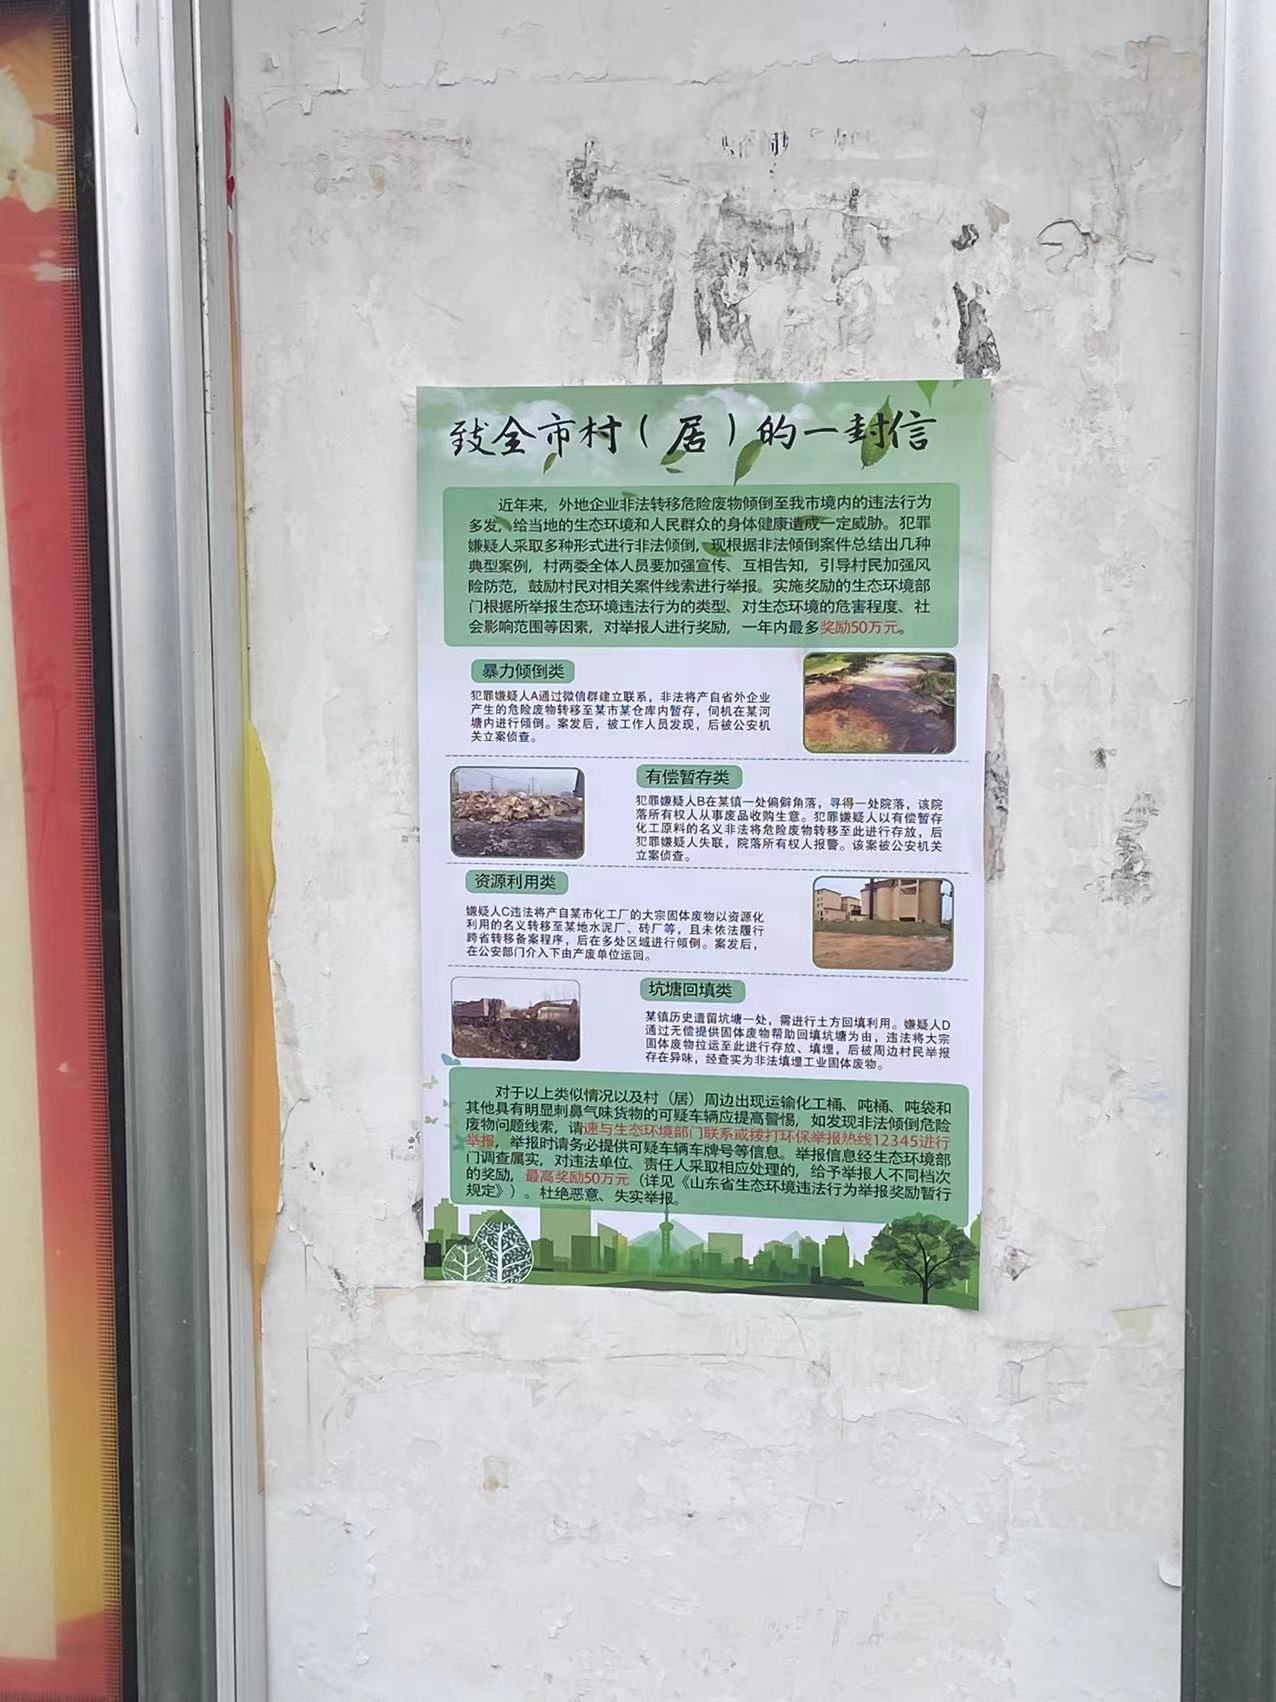 致全市村（居）的一封信
近年来，外地企业非法转移危险废物倾倒至我市境内的违法行为
多发，给当地的生态环境和人民群众的身体健康造成一定威胁。犯罪
嫌疑人采取多种形式进行非法倾倒，现根据非法倾倒案件总结出几种
典型案例，村两委全体人员要加强宣传、互相告知，引导村民加强风
险防范，鼓励村民对相关案件线索进行举报。实施奖励的生态环境部
门根据所举报生态环境违法行为的类型、对生态环境的危害程度、社
会影响范围等因素，对举报人进行奖励，一年内最多奖励50万元。
暴力倾倒类
犯罪嫌疑人A通过微信群建立联系，非法将产自省外企业
产生的危险废物转移至某市某仓库内暂存，伺机在某河
塘内进行倾倒。案发后，被工作人员发现，后被公安机
关立案侦查。
有偿暂存类
犯罪嫌疑人B在某镇一处偏僻角落，寻得一处院落，该院
落所有权人从事废品收购生意。犯罪嫌疑人以有偿暂存
化工原料的名义非法将危险废物转移至此进行存放，后
犯罪嫌疑人失联，院落所有权人报警。该案被公安机关
立案侦查。
资源利用类
嫌疑人C违法将产自某市化工厂的大宗固体废物以资源化
利用的名义转移至某地水泥厂、砖厂等，且未依法履行
跨省转移备案程序，后在多处区域进行倾倒。案发后，
在公安部门介入下由产废单位运回。
坑塘回填类
某镇历史遗留坑塘一处，需进行土方回填利用。嫌疑人D
通过无偿提供固体废物帮助回填坑塘为由，违法将大宗
固体废物拉运至此进行存放、填埋，后被周边村民举报
存在异味，经查实为非法填埋工业固体废物。
对于以上类似情况以及村（居）周边出现运输化工桶、吨桶、吨袋和
其他具有明显刺鼻气味货物的可疑车辆应提高警惕，如发现非法倾倒危险
废物问题线索，请速与生态环境部门联系或拨打环保举报热线12345进行
举报，举报时请务必提供可疑车辆车牌号等信息。举报信息经生态环境部
门调查属实，对违法单位、责任人采取相应处理的，给予举报人不同档次
的奖励，最高奖励50万元（详见《山东省生态环境违法行为举报奖励暂行
规定》）。杜绝恶意、失实举报。